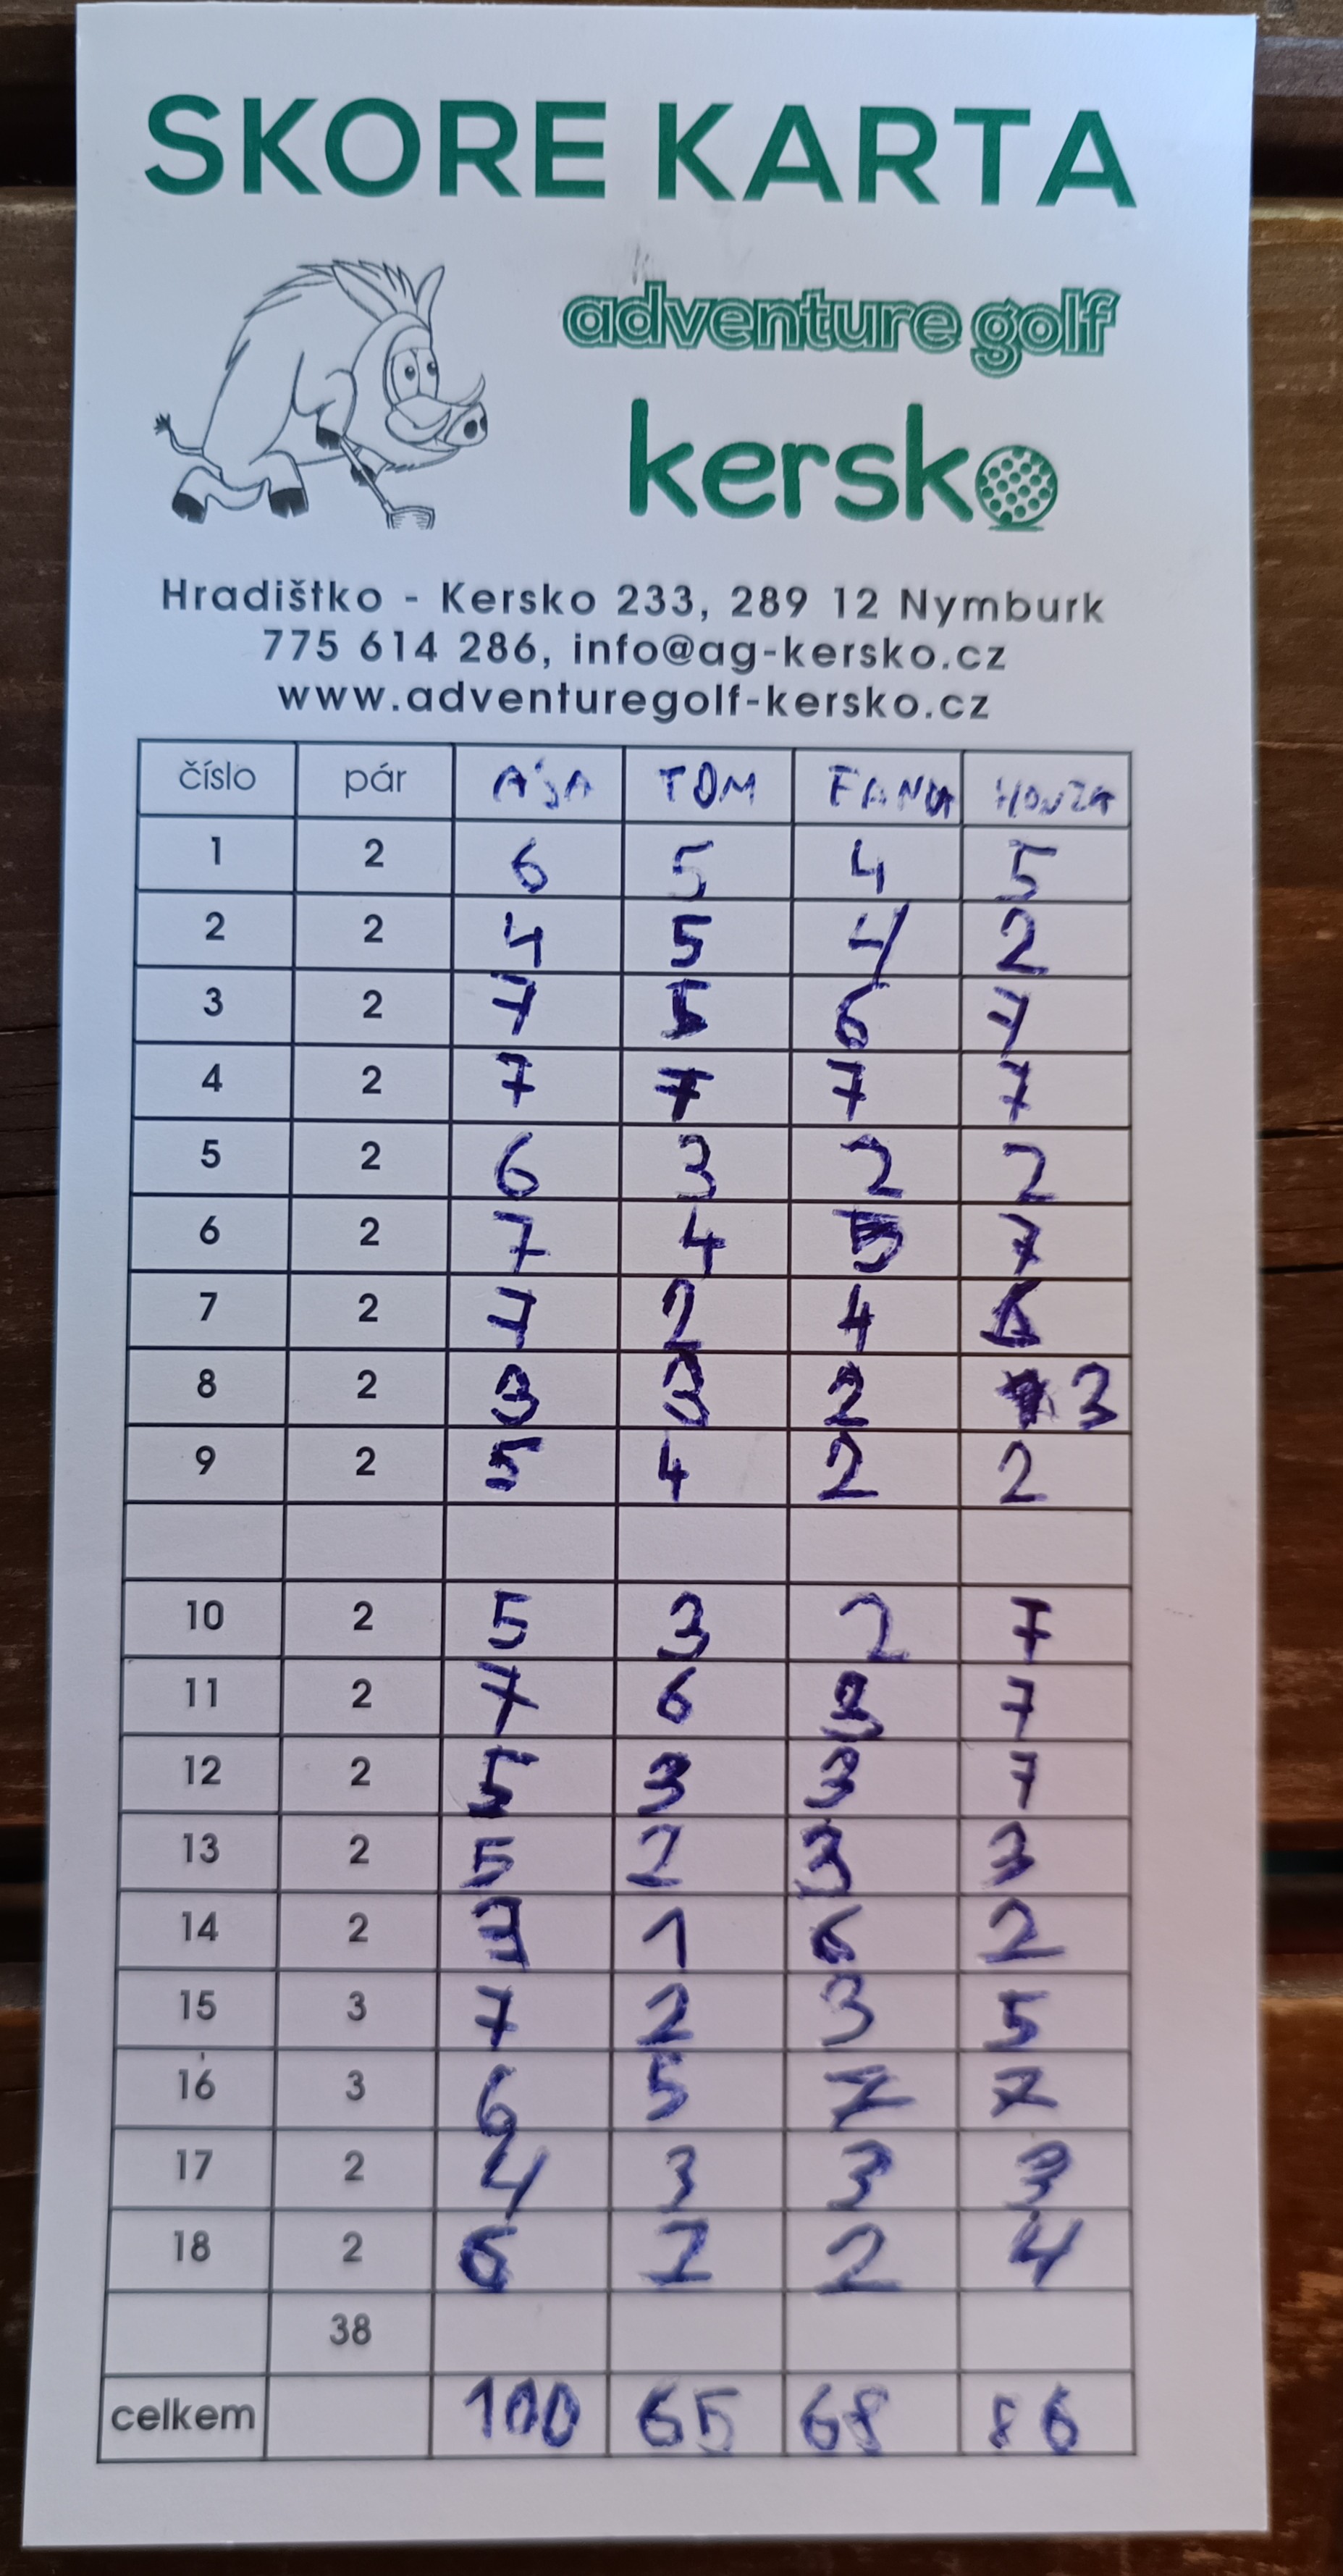 SKORE KARTA
adventure golf
kersko
Hradištko - Kersko 233, 289 12 Nymburk
775 614 286, info@ag-kersko.cz
www.adventuregolf-kersko.cz
číslo pár ÁJA TOM FANDA HONZA
1 2 6 5 4 5
2 2 4 5 4 2
3 2 7 5 6 7
4 2 7 7 7 7
5 2 6 3 2 2
6 2 7 4 5 7
7 2 7 2 4
8 2 3 3 2 3
9 2 5 4 2 2
10 2 5 3 2 7
11 2 7 6 3 7
12 2 5 3 3 7
13 2 5 2 3 3
14 2 3 1 6 2
15 3 7 2 3 5
16 3 6 5 7 7
17 2 4 3 3 3
18 2 6 2 2 4
38
celkem 100 65 68 86